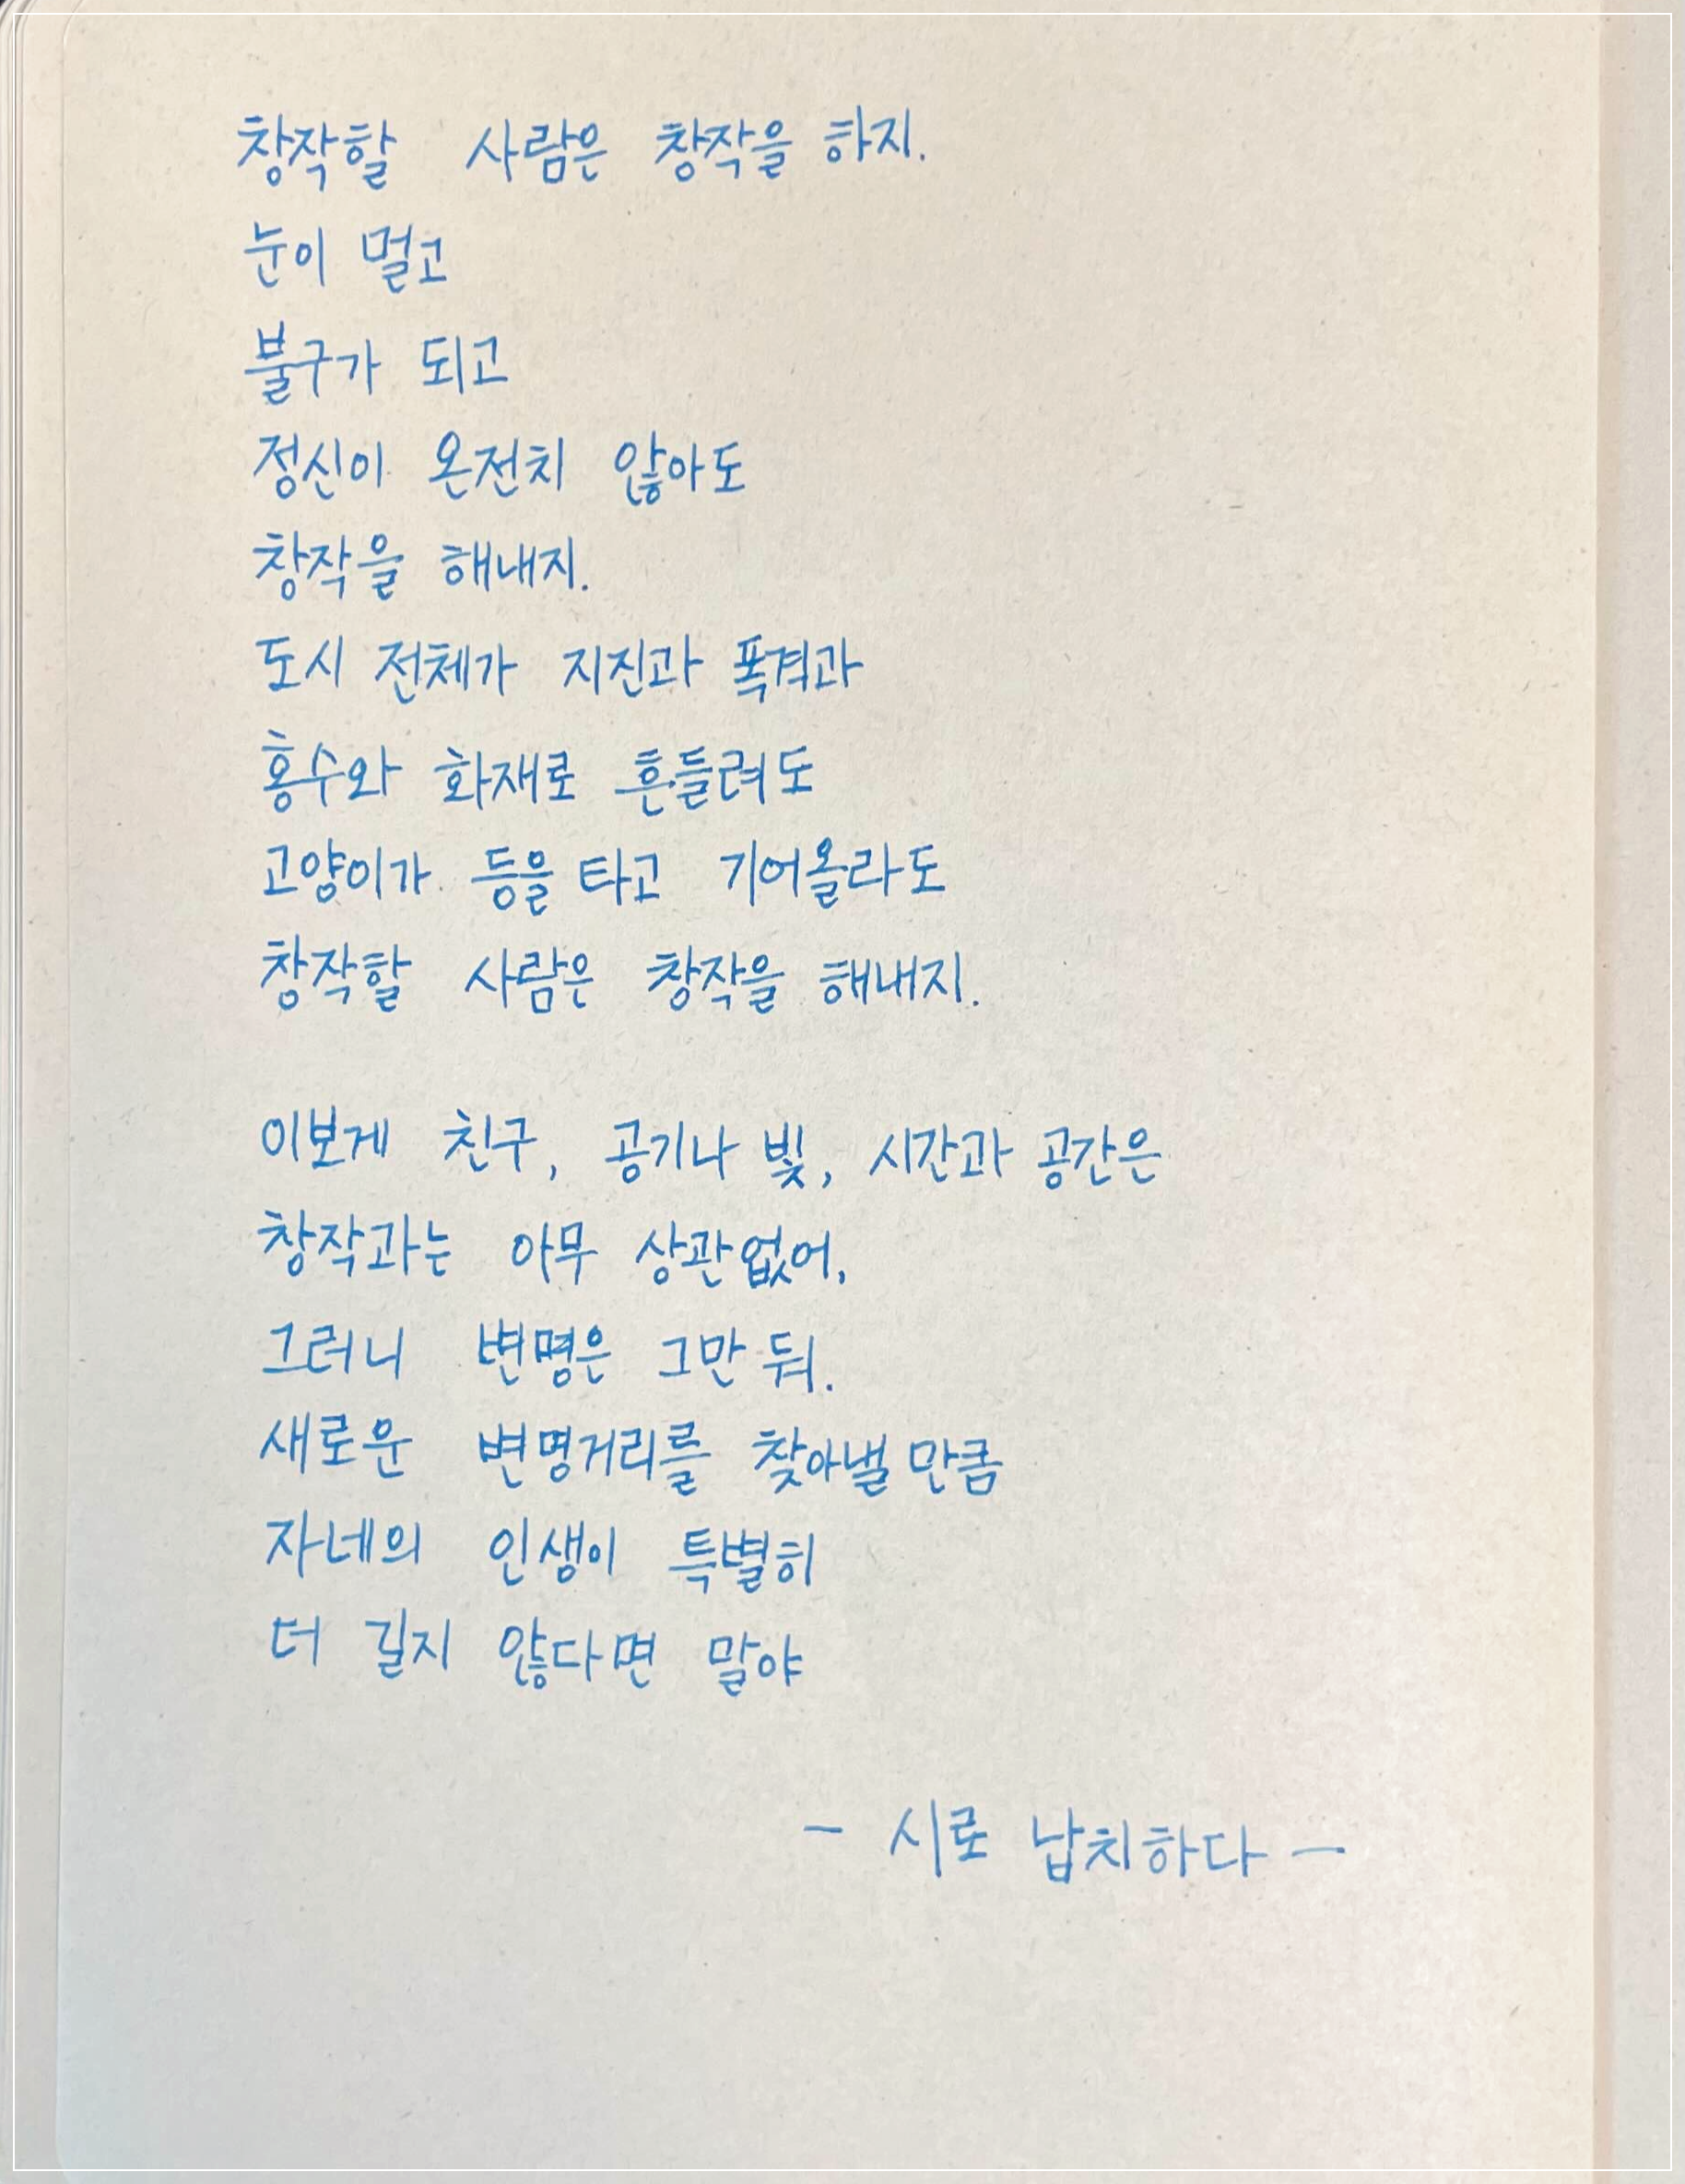 창작할 사람은 창작을 하지.
눈이 멀고
불구가 되고
정신이 온전치 않아도
창작을 해내지.
도시 전체가 지진과 폭격과
홍수와 화재로 흔들려도
고양이가 등을 타고 기어올라도
창작할 사람은 창작을 해내지.
이보게 친구, 공기나 빛, 시간과 공간은
창작과는 아무 상관없어,
그러니 변명은 그만 둬.
새로운 변명거리를 찾아낼 만큼
자네의 인생이 특별히
더 길지 않다면 말야
- 시로 납치하다 -